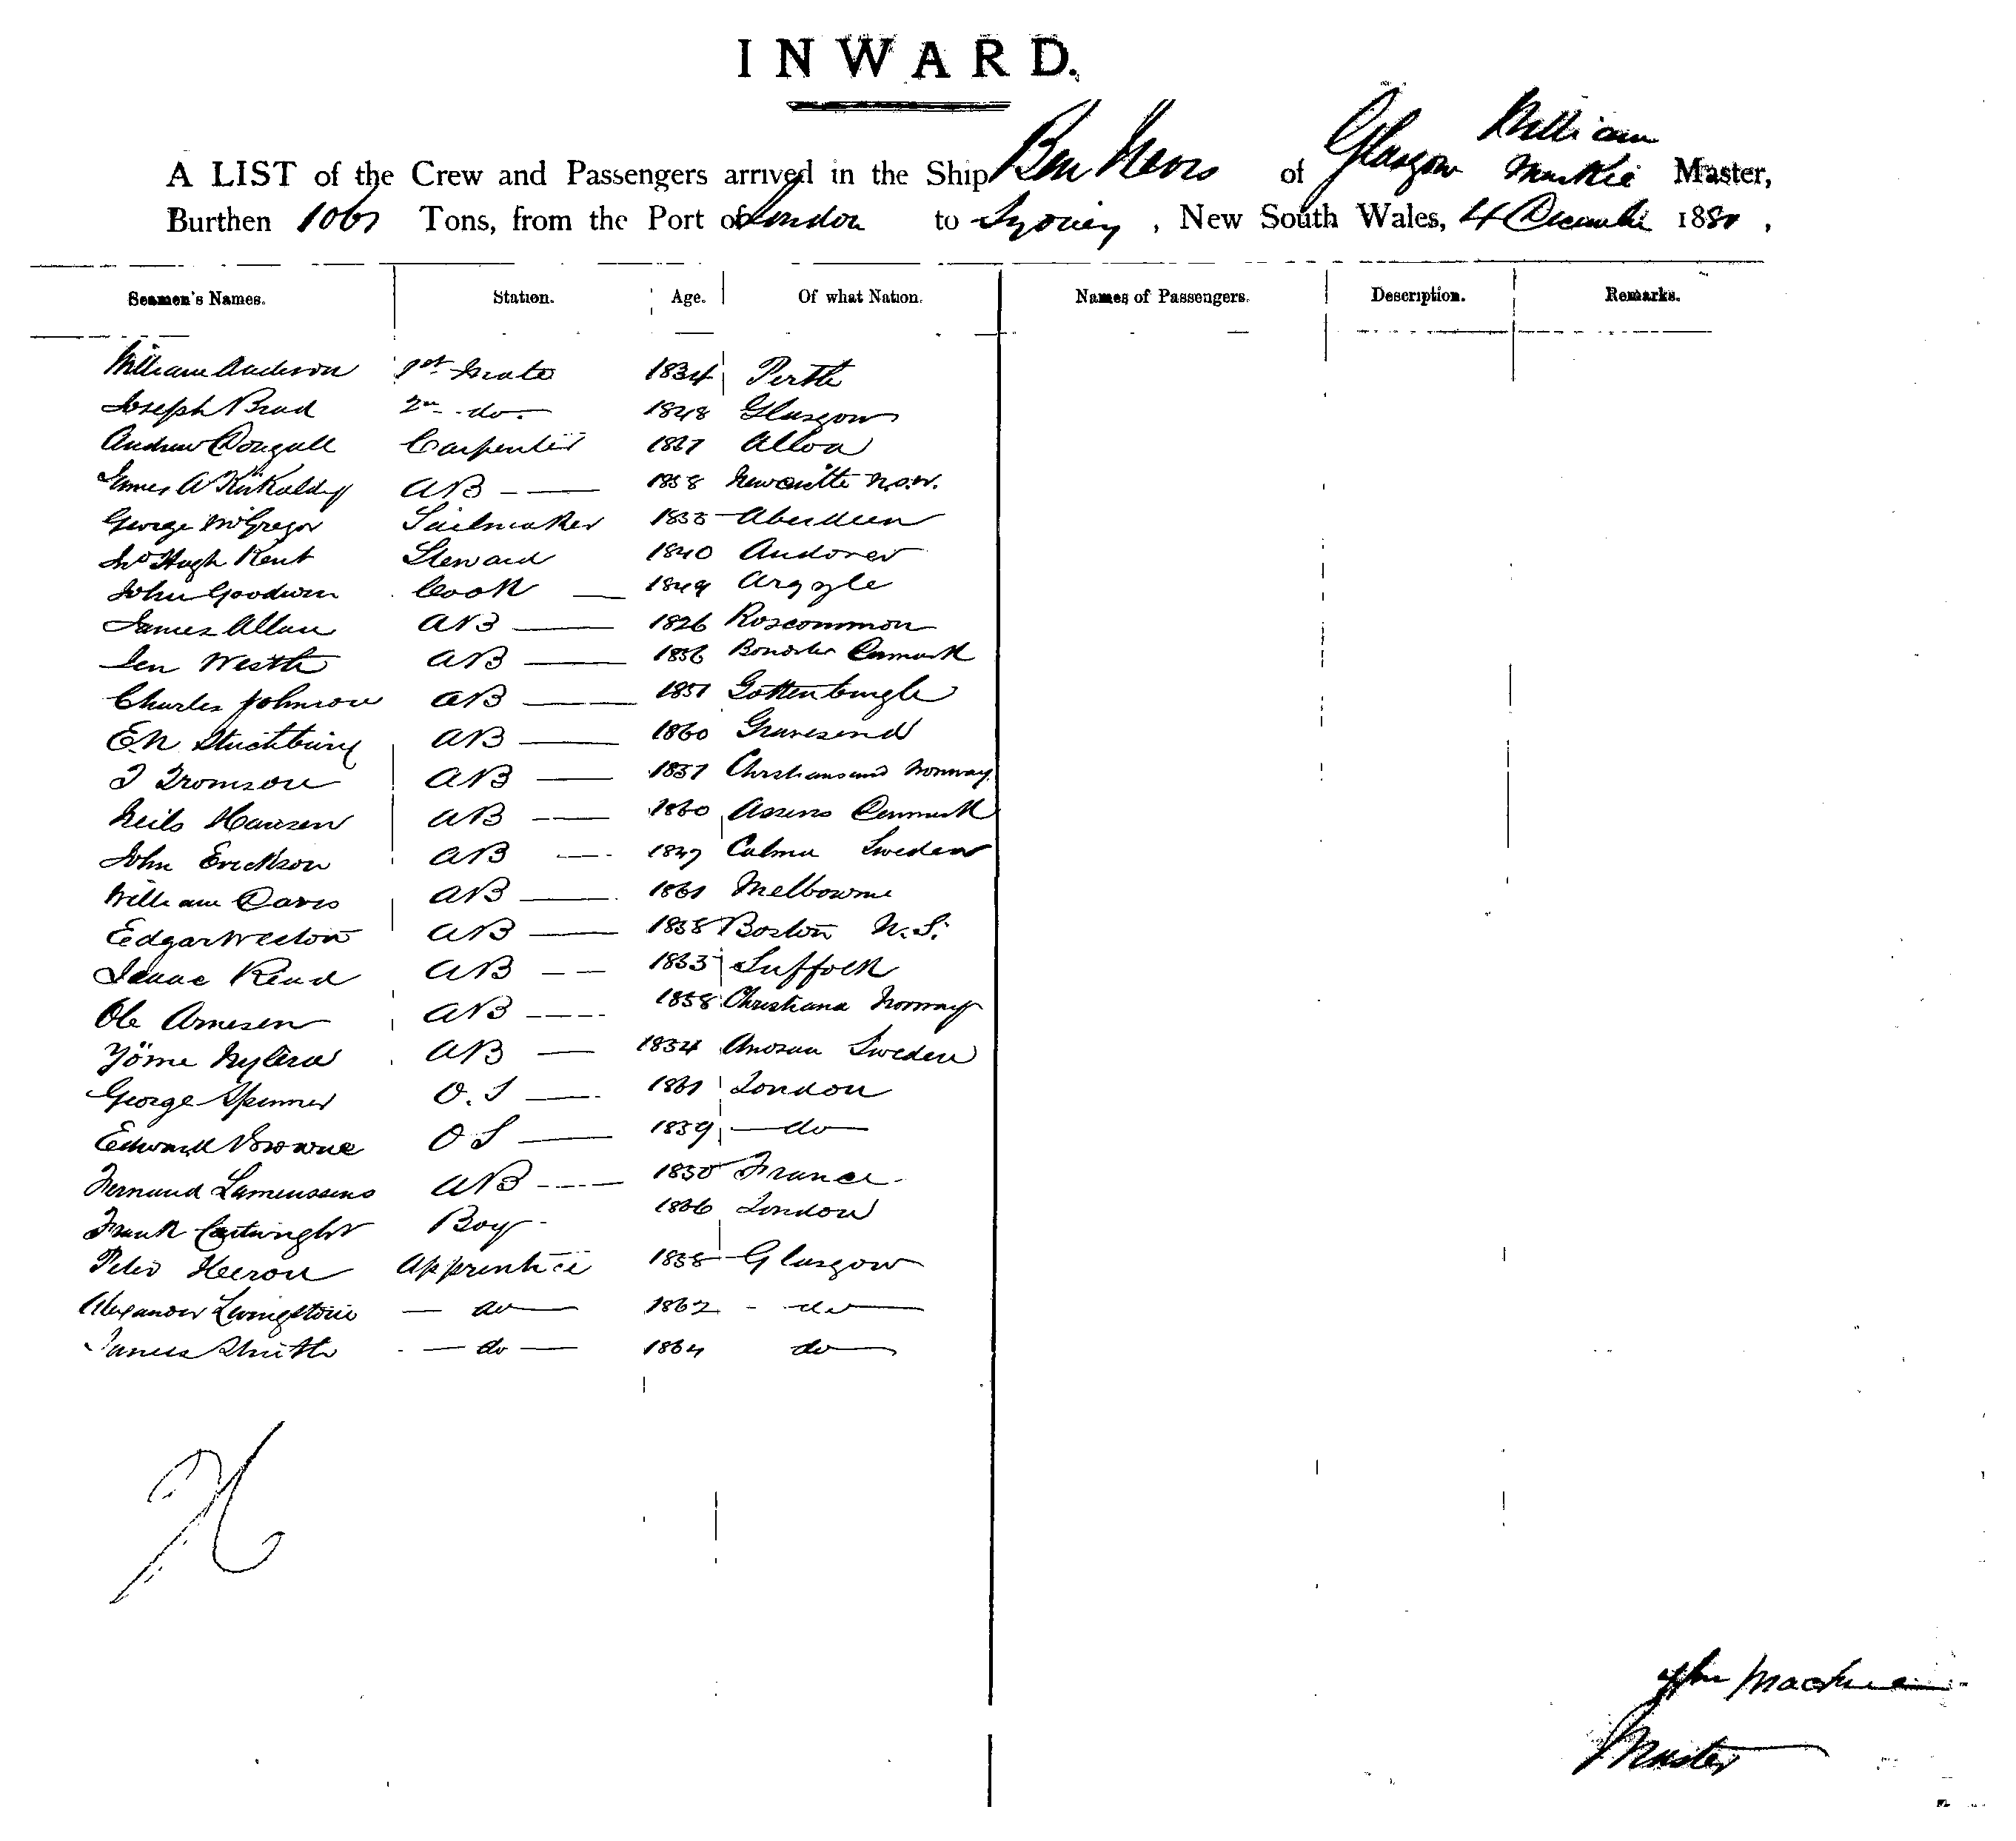 INWARD.
William
A LIST of the Crew and Passengers arrived in the Ship Ben Nevis of Glasgow Mackie Master,
Burthen 1061 Tons, from the Port of London to Sydney, New South Wales, 4 December 1880,
Seamen's Names. Station. Age. Of what Nation. Names of Passengers. Description. Remarks.
William Anderson 1st Mate 1834 Perth
Joseph 2nd do. 1848 Glasgow
Andrew Dougall Carpenter Alloa
James A Kirkaldy AB 1858 Newcastle
George McGregor Sailmaker Aberdeen
Hugh Kent Steward 1840 Andover
John Goodwin Cook 1849 Argyle
James Allan AB 1826 Roscommon
AB 1856 Denmark
Charles Johnson AB 1851
E.N Stuchbury AB 1860 Gravesend
AB Norway
Neils Hansen AB 1860 Assens Denmark
John Erickson AB Sweden
William Davis AB 1861 Melbourne
Edgar Weston AB 1858 Boston
Isaac Read AB Suffolk
Ole Arnesen AB 1858 Christiana Norway
AB 1834 Sweden
George O.S 1861 London
Edward Browne O S do
AB France
Frank Cartwright Boy London
Peter Heeron Apprentice 1858 Glasgow
Alexander Livingstone do 1862 do
James Smith do 1864 do
Master